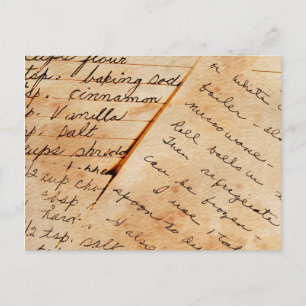 cups flour
tsp. baking sod
sp. cinnamon
p. Vanilla
p. salt
cups shredd
2 cup cho
tbsp.
1/2 tsp. salt
or white c
boiler
microwave -
Roll balls in
Then refrigerate
can be frozen -
I use 1 tea
spoon to di